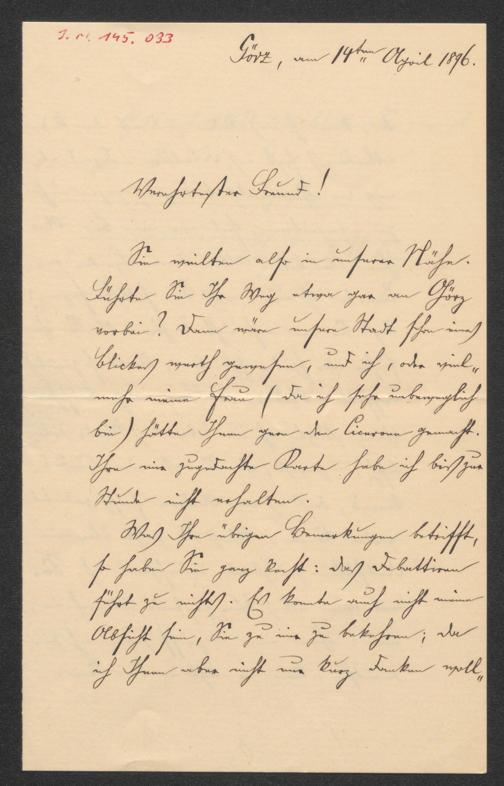 J. N. 145.033
Görz, am 14ten April 1896.
Verehrtester Freund!
Sie weilten also in unserer Nähe.
Führte Sie Ihr Weg etwa gar an Görz
vorbei? Dann wäre unsere Stadt schon eines
Blickes werth gewesen, und ich, oder viel„
mehr meine Frau (da ich sehr unbeweglich
bin) hätte Ihnen gern den Cicerone gemacht.
Ihre mir zugedachte Karte habe ich bis zur
Stunde nicht erhalten.
Was Ihre übrigen Bemerkungen betrifft,
so haben Sie ganz Recht: das Debattiren
führt zu nichts. Es konnte auch nicht meine
Absicht sein, Sie zu mir zu bekehren; da
ich Ihnen aber nicht nur kurz danken woll„